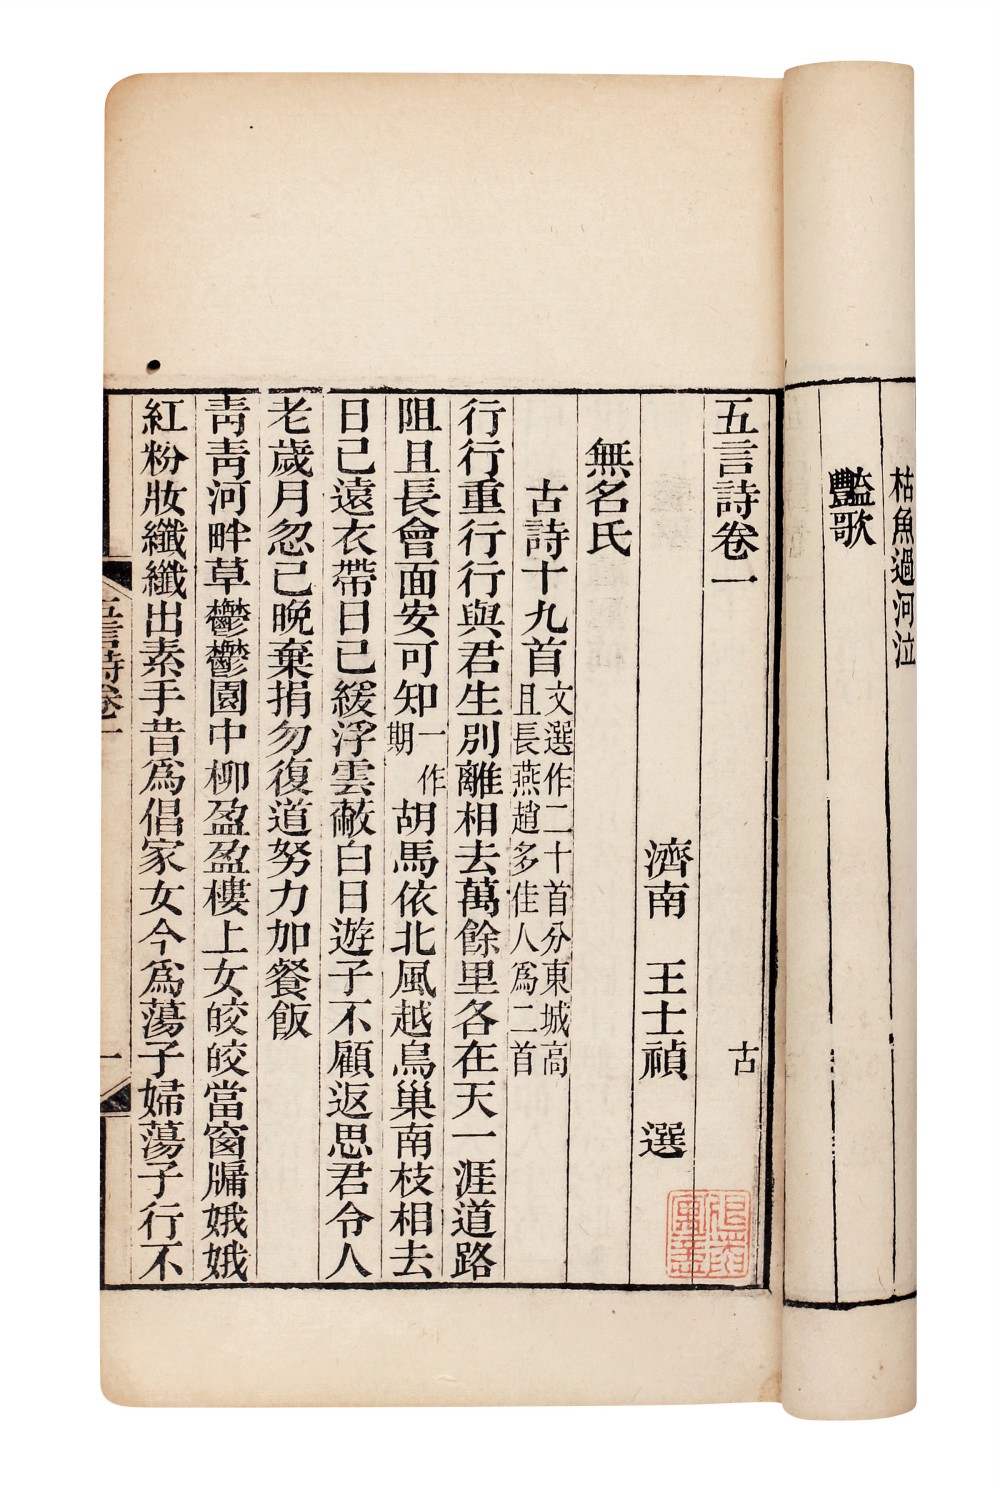 枯魚過河泣
豔歌
五言詩卷一
古
濟南　王士禎　選
無名氏
古詩十九首
文選作二十首分東城高
且長燕趙多佳人爲二首
行行重行行與君生別離相去萬餘里各在天一涯道路
阻且長會面安可知一作期胡馬依北風越鳥巢南枝相去
日已遠衣帶日已緩浮雲蔽白日遊子不顧返思君令人
老歲月忽已晚棄捐勿復道努力加餐飯
靑靑河畔草鬱鬱園中柳盈盈樓上女皎皎當窗牖娥娥
紅粉妝纖纖出素手昔爲倡家女今爲蕩子婦蕩子行不
五言詩卷一
一